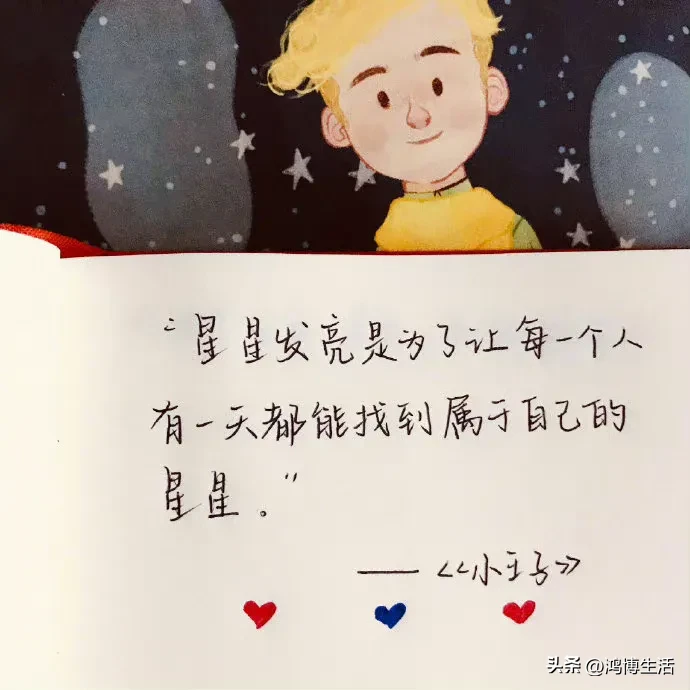 “星星发亮是为了让每一个人
有一天都能找到属于自己的
星星。”
——《小王子》
头条 @鸿博生活